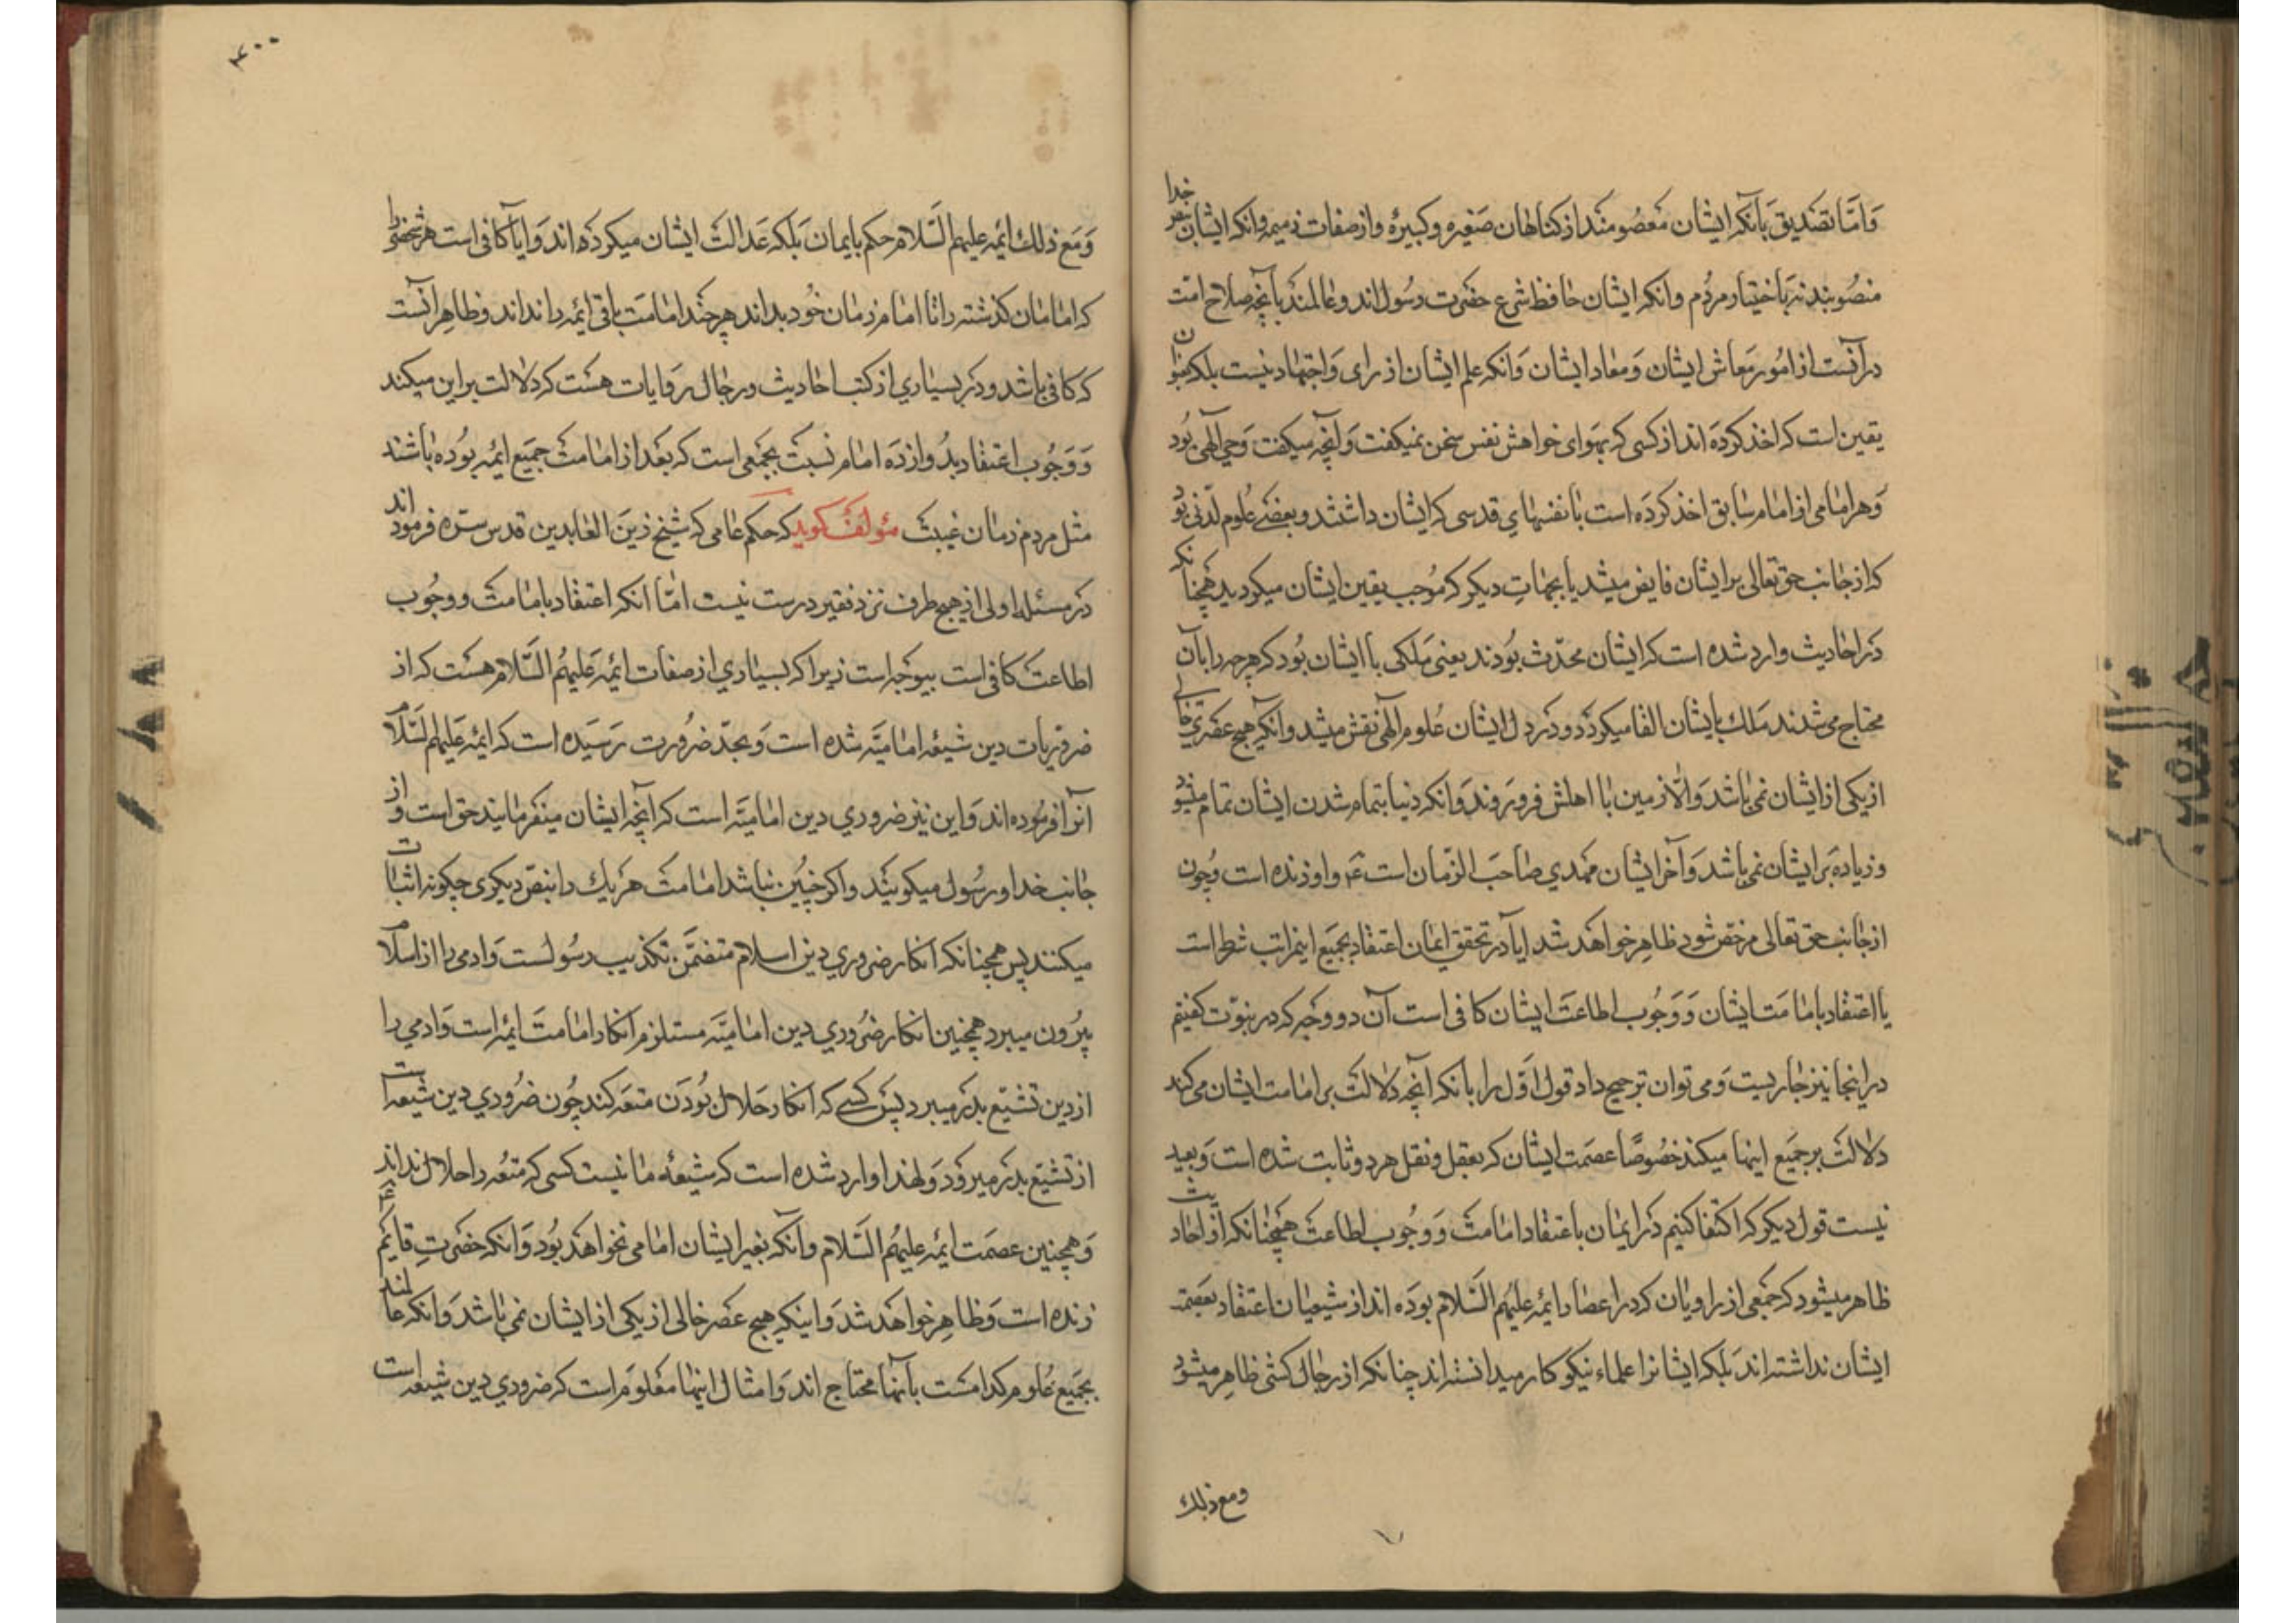 وامّا تصدیق بآنکه ایشان معصومند از کناهان صغیره وکبیره واز صفات ذمیمه وانکه ایشان بنص خدا
منصوبند نه باختیار مردم وانکه ایشان حافظ شرع حضرت رسول اند وعالمند بآنچه صلاح امت
در آنست از امور معاش ایشان ومعاد ایشان وانکه علم ایشان از رای واجتهاد نیست بلکه بعنوان
یقین است که اخذ کرده اند از کسی که بهوای خواهش نفس سخن نمیکفت وآنچه میکفت وحی الهی بود
وهر امامی از امام سابق اخذ کرده است بانفسهای قدسی که ایشان داشتند وبعضی علوم لدّنی بود
که از جانب حق تعالی بر ایشان فایض میشد یا بجهات دیکر که موجب یقین ایشان میکردید همچنانکه
در احادیث وارد شده است که ایشان محدّث بودند یعنی ملکی با ایشان بود که هرچه را بآن
محتاج می شدند ملك بایشان القا میکرد ودر دل ایشان علوم آلهی نقش میشد وآنکه هیچ عصری خالی
از یکی از ایشان نمی باشد والّا زمین با اهلش فرو روند وانکه دنیا بتمام شدن ایشان تمام میشود
وزیاده بر ایشان نمی باشد وآخر ایشان مهدی صاحب الزمان است ع واو زنده است وچون
از جانب حق تعالی مرخّص شود ظاهر خواهد شد ایا در تحقق ایمان اعتقاد بجمیع اینمراتب شرط است
یا اعتقاد بامامت ایشان ووجوب اطاعت ایشان کافی است آن دو وجه که در نبوّت کفتیم
در اینجا نیز جاریست ومی توان ترجیح داد قول اوّل را بانکه آنچه دلالت بر امامت ایشان می کند
دلالت بر جمیع اینها میکند خصوصًا عصمت ایشان که بعقل ونقل هر دو ثابت شده است وبعید
نیست قول دیکر که اکتفا کنیم در ایمان باعتقاد امامت ووجوب اطاعت همچنانکه از احادیث
ظاهر میشود که جمعی از راویان که در اعصار ایمه علیهم السّلام بوده اند از شیعیان اعتقاد بعصمت
ایشان نداشته اند بلکه ایشانرا علماء نیکوکار میدانسته اند چنانکه از رجال کشی ظاهر میشود
ومع ذلك
۴۰۰
ومع ذلك ایمه علیهم السّلام حکم بایمان بلکه عدالت ایشان میکرده اند وایا کافی است هر شخصی را
که امامان کذشته را تا امام زمان خود بداند هرچند امامت باقی ایمه را نداند وظاهر آنست
که کافی باشد ودر بسیاری از کتب احادیث ورجال روایات هست که دلالت بر این میکند
ووجوب اعتقاد بدوازده امام نسبت بجمعی است که بعد از امامت جمیع ایمه بوده باشند
مثل مردم زمان غیبت مؤلف کوید که حکم عامی که شیخ زین العابدین قدس سرّه فرموده اند
در مسئله اولی از هیچ طرف نزد فقیر درست نیست امّا آنکه اعتقاد بامامت ووجوب
اطاعت کافی است بیوجه است زیرا که بسیاری از صفات ایمه علیهم السّلام هست که از
ضروریات دین شیعه امامیّه شده است وبحدّ ضرورت رسیده است که ایمه علیهم السّلام
آنرا فرموده اند واین نیز ضروری دین امامیّه است که آنچه ایشان میفرمایند حق است واز
جانب خدا ورسول میکویند واکر چنین نباشد امامت هر یك را بنص دیکری چکونه اثبات
میکنند پس همچنانکه انکار ضروری دین اسلام متضمّن تکذیب رسولست وادمی را از اسلام
بیرون میبرد همچنین انکار ضروری دین امامیّه مستلزم انکار امامت ایمه است وادمی را
از دین تشیّع بدر میبرد پس کسی که انکار حلال بودن متعه کند چون ضروری دین شیعه است
از تشیّع بدر میرود ولهذا وارد شده است که شیعهٔ ما نیست کسی که متعه را حلال نداند
وهمچنین عصمت ایمه علیهم السّلام وآنکه بغیر ایشان امامی نخواهد بود وانکه حضرت قایم ع
زنده است وظاهر خواهد شد واینکه هیچ عصر خالی از یکی از ایشان نمی باشد وانکه عالمند
بجمیع علومی که امت بآنها محتاج اند وامثال اینها معلوم است که ضروری دین شیعه است